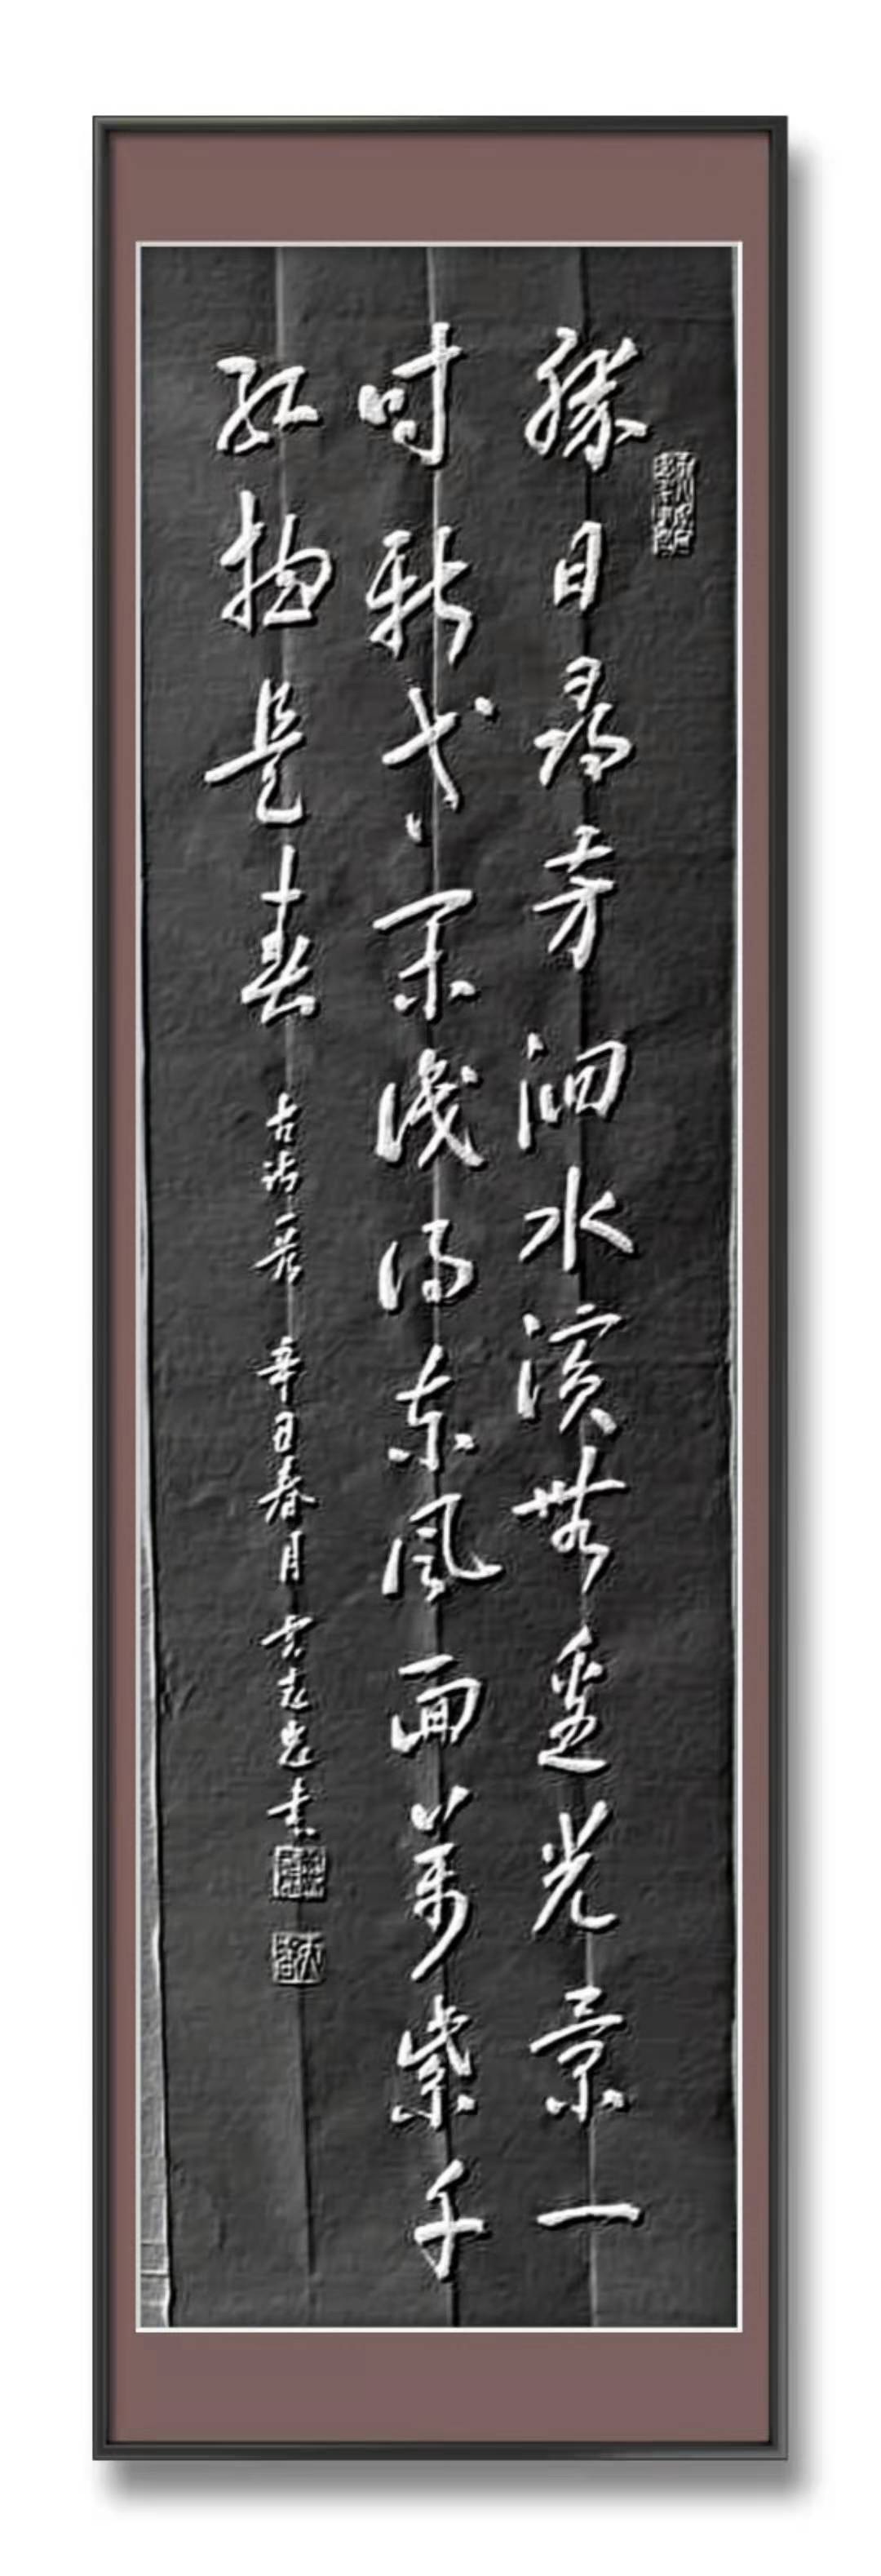 勝日尋芳泗水濱無邊光景一
時新等閑識得東風面萬紫千
紅揔是春 古詩一首 辛丑春月 志忠書